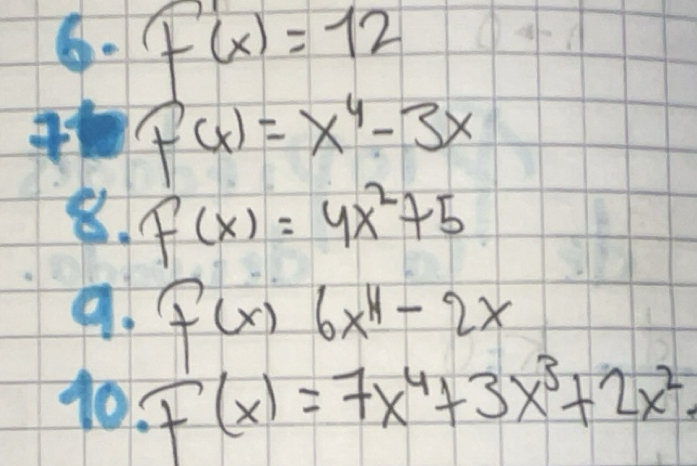 6. f(x) = 12
7 f(x) = x⁴ - 3x
8. f(x) = 4x² + 5
9. f(x) 6x⁴ - 2x
10. f(x) = 7x⁴ + 3x³ + 2x²